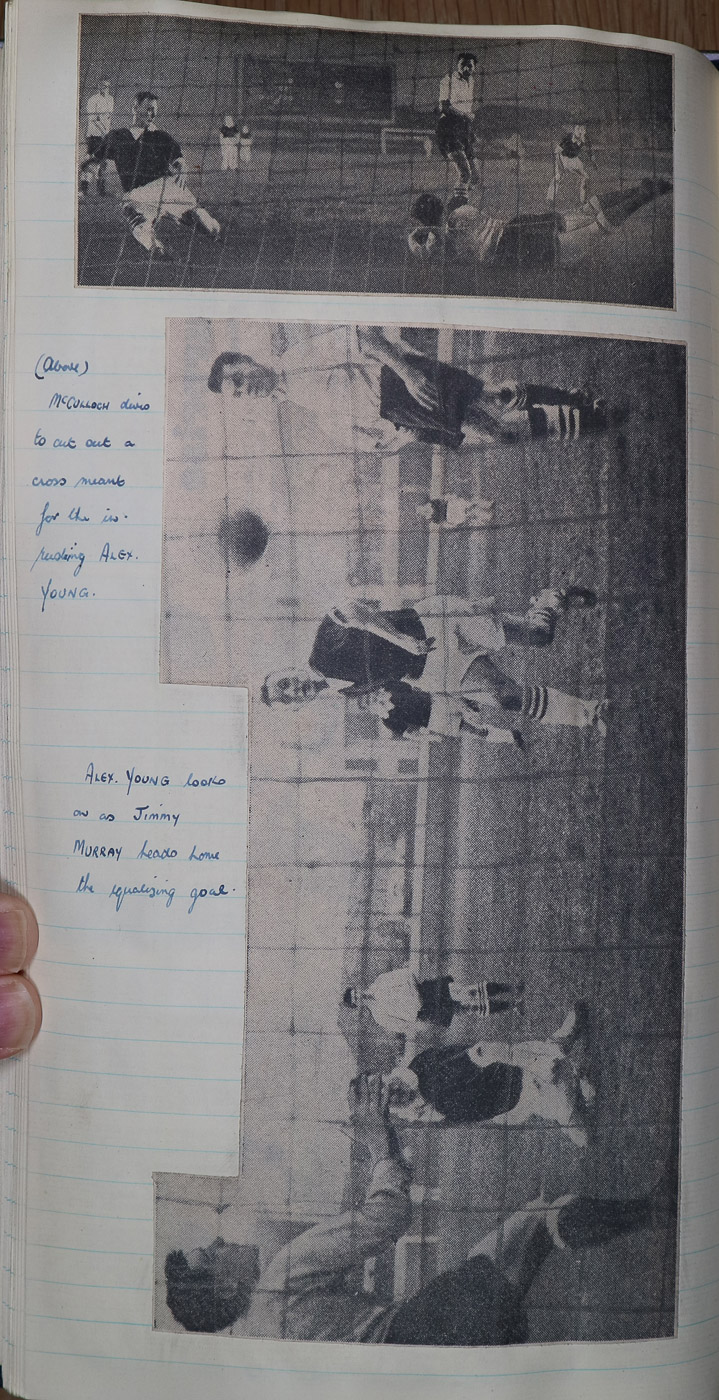 (Above)
McCULLOCH dives
to cut out a
cross meant
for the in-
rushing ALEX.
YOUNG.
ALEX. YOUNG looks
on as Jimmy
MURRAY heads home
the equalising goal.